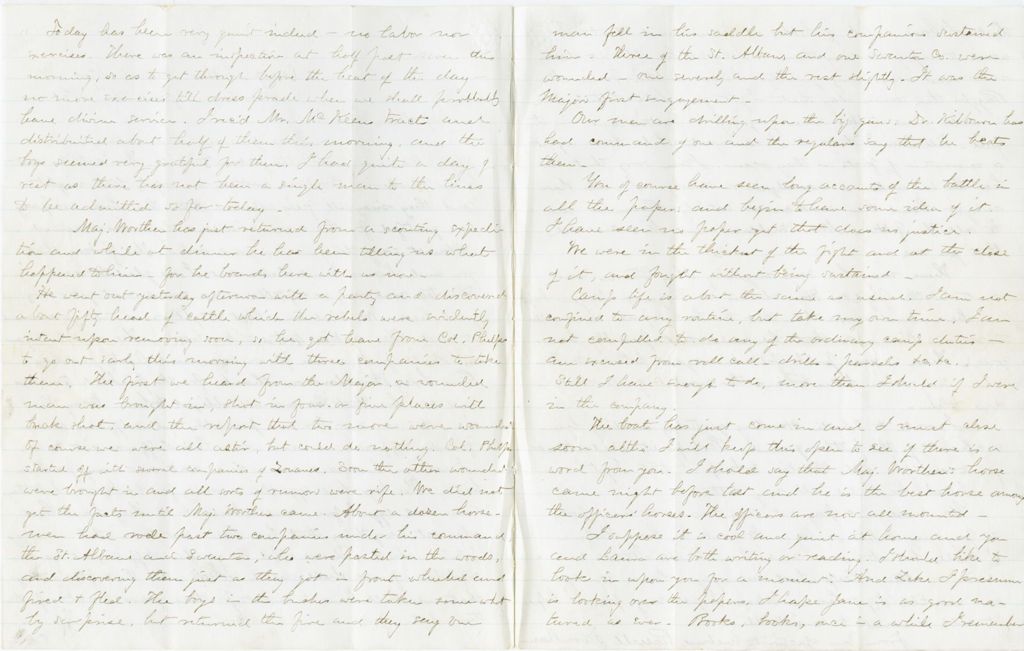 Today has been very quiet indeed - no labor nor
exercises. There was an inspection at half past seven this
morning, so as to get through before the heat of the day
no more exercises till dress parade when we shall probably
have divine service. I rec'd Mr. McKeens tracts and
distributed about half of them this morning, and the
boys seemed very grateful for them. I had quite a day of
rest as there has not been a single man to the lines
to be admitted so far today -
Maj. Worthen has just returned from a scouting expedi-
tion and while at dinner he has been telling us what
happened to him - for he boards here with us now -
He went out yesterday afternoon with a party and discovered
about fifty head of cattle which the rebels were evidently
intent upon removing soon, so he got leave from Col. Phelps
to go out early this morning with three companies to take
them. The first we heard from the Major, a wounded
man was brought in, shot in four or five places with
buck shot, and the report that two more were wounded
Of course we were all astir, but could do nothing. Col. Phelps
started off with several companies of Zouaves. Soon the other wounded
were brought in and all sorts of rumors were rife. We did not
get the facts until Maj. Worthen came. About a dozen horse-
men had rode past two companies under his command
the St. Albans and Swanton, who were posted in the woods,
and discovering them just as they got in front wheeled and
fired & fled. The boys in the bushes were taken somewhat
by surprise, but returned the fire and they say one
man fell in his saddle but his companions sustained
him - Three of the St. Albans and one Swanton Co. were
wounded - one severely and the rest slightly. It was the
Majors first engagement -
Our men are drilling upon the big guns. Dr. Kilbourn has
had command of one and the regulars say that he beats
them -
You of course have seen long accounts of the battle in
all the papers and begin to have some idea of it.
I have seen no paper yet that does us justice.
We were in the thickest of the fight and at the close
of it, and fought without being sustained -
Camp life is about the same as usual. I am not
confined to any routine, but take my own time. I am
not compelled to do any of the ordinary camp duties -
am excused from roll call - drills - parades &c. &c.
Still I have enough to do, more than I should if I were
in the company.
The boat has just come in and I must close
soon altho I will keep this open to see if there is a
word from you. I should say that Maj. Worthen's horse
came night before last and he is the best horse among
the officers horses. The officers are now all mounted -
I suppose it is cool and quiet at home and you
and are both writing or reading. I should like to
look in upon you for a moment. And Zeke I presume
is looking over the papers. I hope Jane is as good na-
tured as ever - Books, books, once in a while I remember